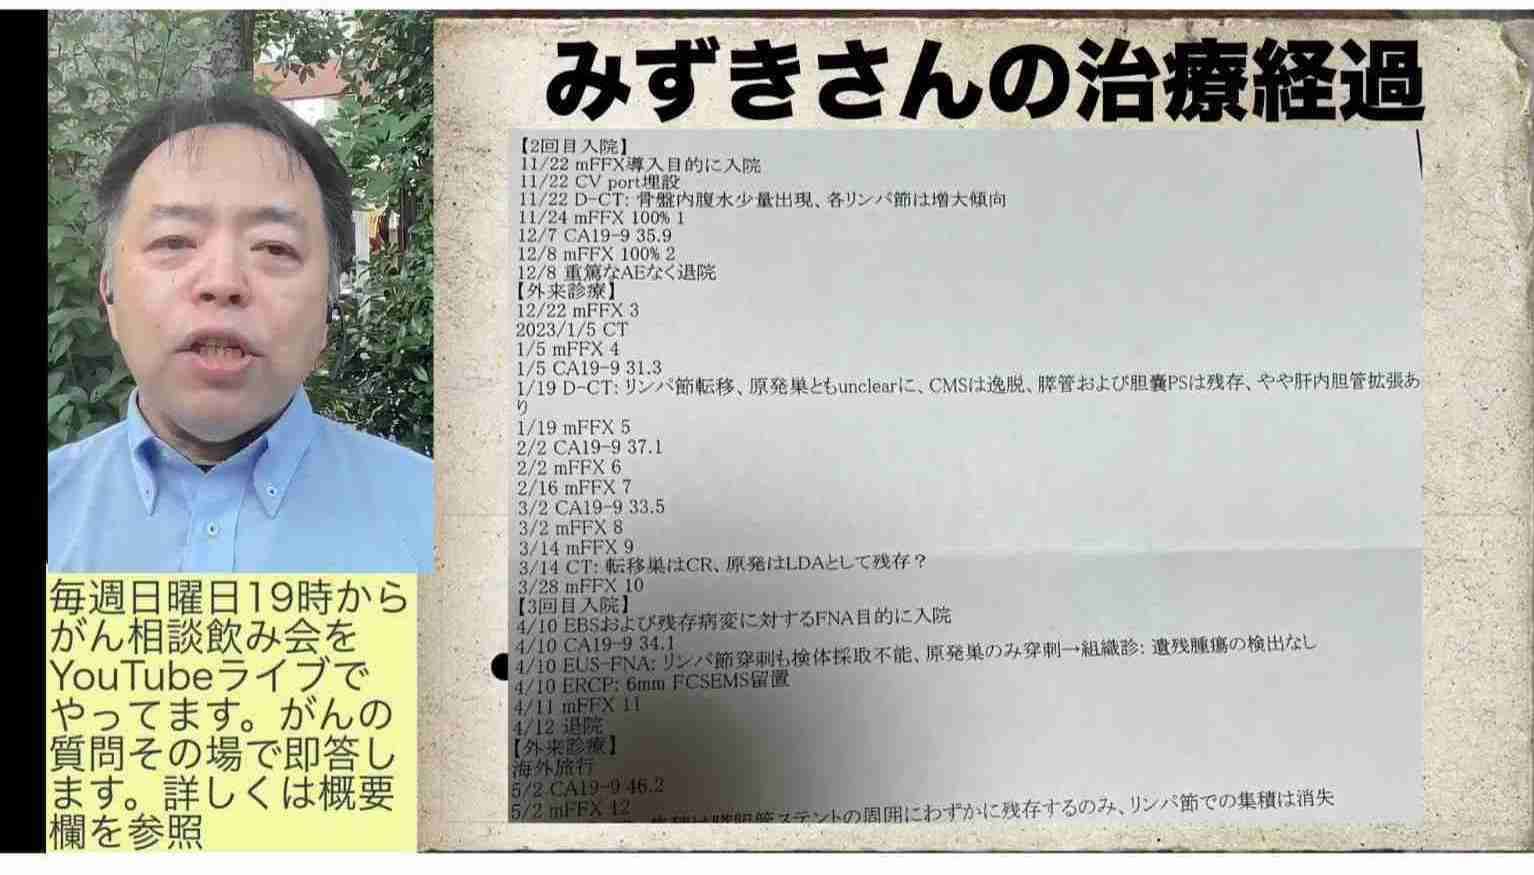 みずきさんの治療経過
【2回目入院】
11/22 mFFX導入目的に入院
11/22 CV port埋設
11/22 D-CT: 骨盤内腹水少量出現、各リンパ節は増大傾向
11/24 mFFX 100% 1
12/7 CA19-9 35.9
12/8 mFFX 100% 2
12/8 重篤なAEなく退院
【外来診療】
12/22 mFFX 3
2023/1/5 CT
1/5 mFFX 4
1/5 CA19-9 31.3
1/19 D-CT: リンパ節転移、原発巣ともunclearに、CMSは逸脱、膵管および胆嚢PSは残存、やや肝内胆管拡張あ
り
1/19 mFFX 5
2/2 CA19-9 37.1
2/2 mFFX 6
2/16 mFFX 7
3/2 CA19-9 33.5
3/2 mFFX 8
3/14 mFFX 9
3/14 CT: 転移巣はCR、原発はLDAとして残存？
3/28 mFFX 10
【3回目入院】
4/10 EBSおよび残存病変に対するFNA目的に入院
4/10 CA19-9 34.1
4/10 EUS-FNA: リンパ節穿刺も検体採取不能、原発巣のみ穿刺→組織診: 遺残腫瘍の検出なし
4/10 ERCP: 6mm FCSEMS留置
4/11 mFFX 11
4/12 退院
【外来診療】
海外旅行
5/2 CA19-9 46.2
5/2 mFFX 12
ステントの周囲にわずかに残存するのみ、リンパ節での集積は消失
毎週日曜日19時から
がん相談飲み会を
YouTubeライブで
やってます。がんの
質問その場で即答し
ます。詳しくは概要
欄を参照